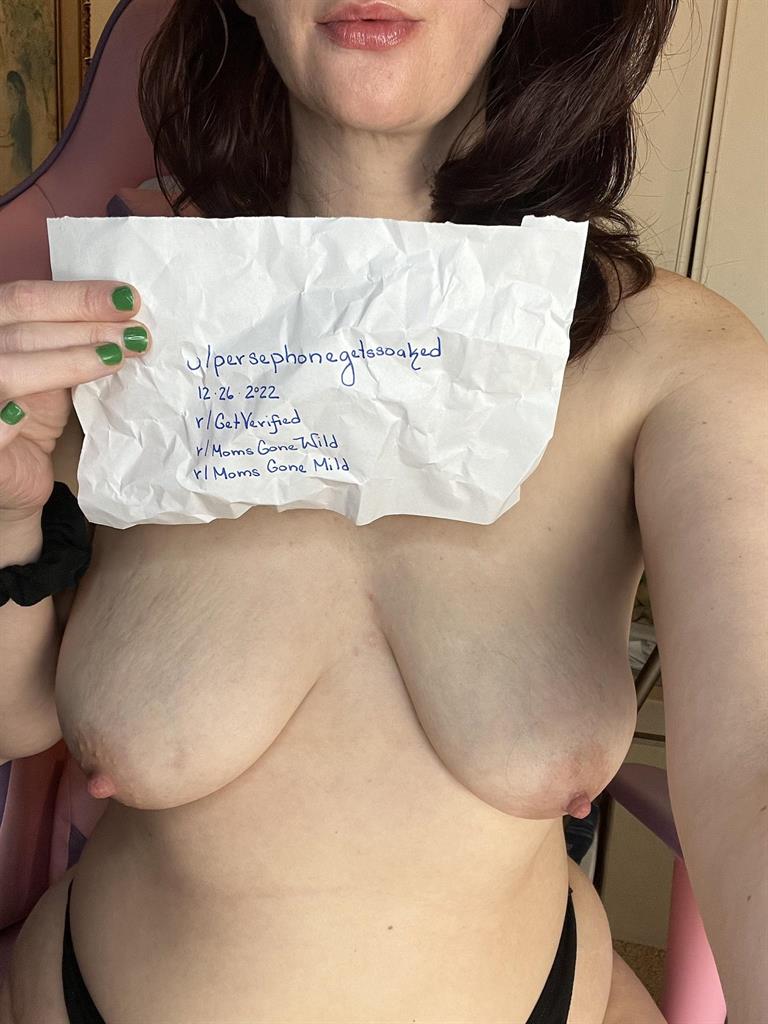 u/persephonegetssoaked
12·26·2022
r/GetVerified
r/MomsGoneWild
r/Moms Gone Mild